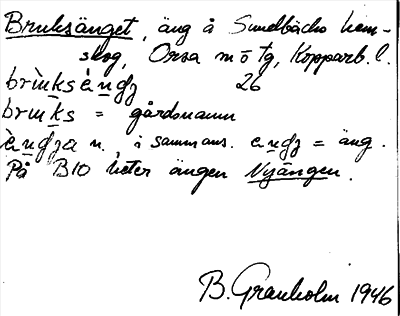 Bruksänget, äng å Sundbäcks hem-
skog, Orsa m o tg, Kopparb. l.
brùksènʤ 26
bruks = gårdsnamn
ènʤa n., i sammans. enʤ = äng.
På B10 heter ängen Nyängen.
B. Granholm 1946